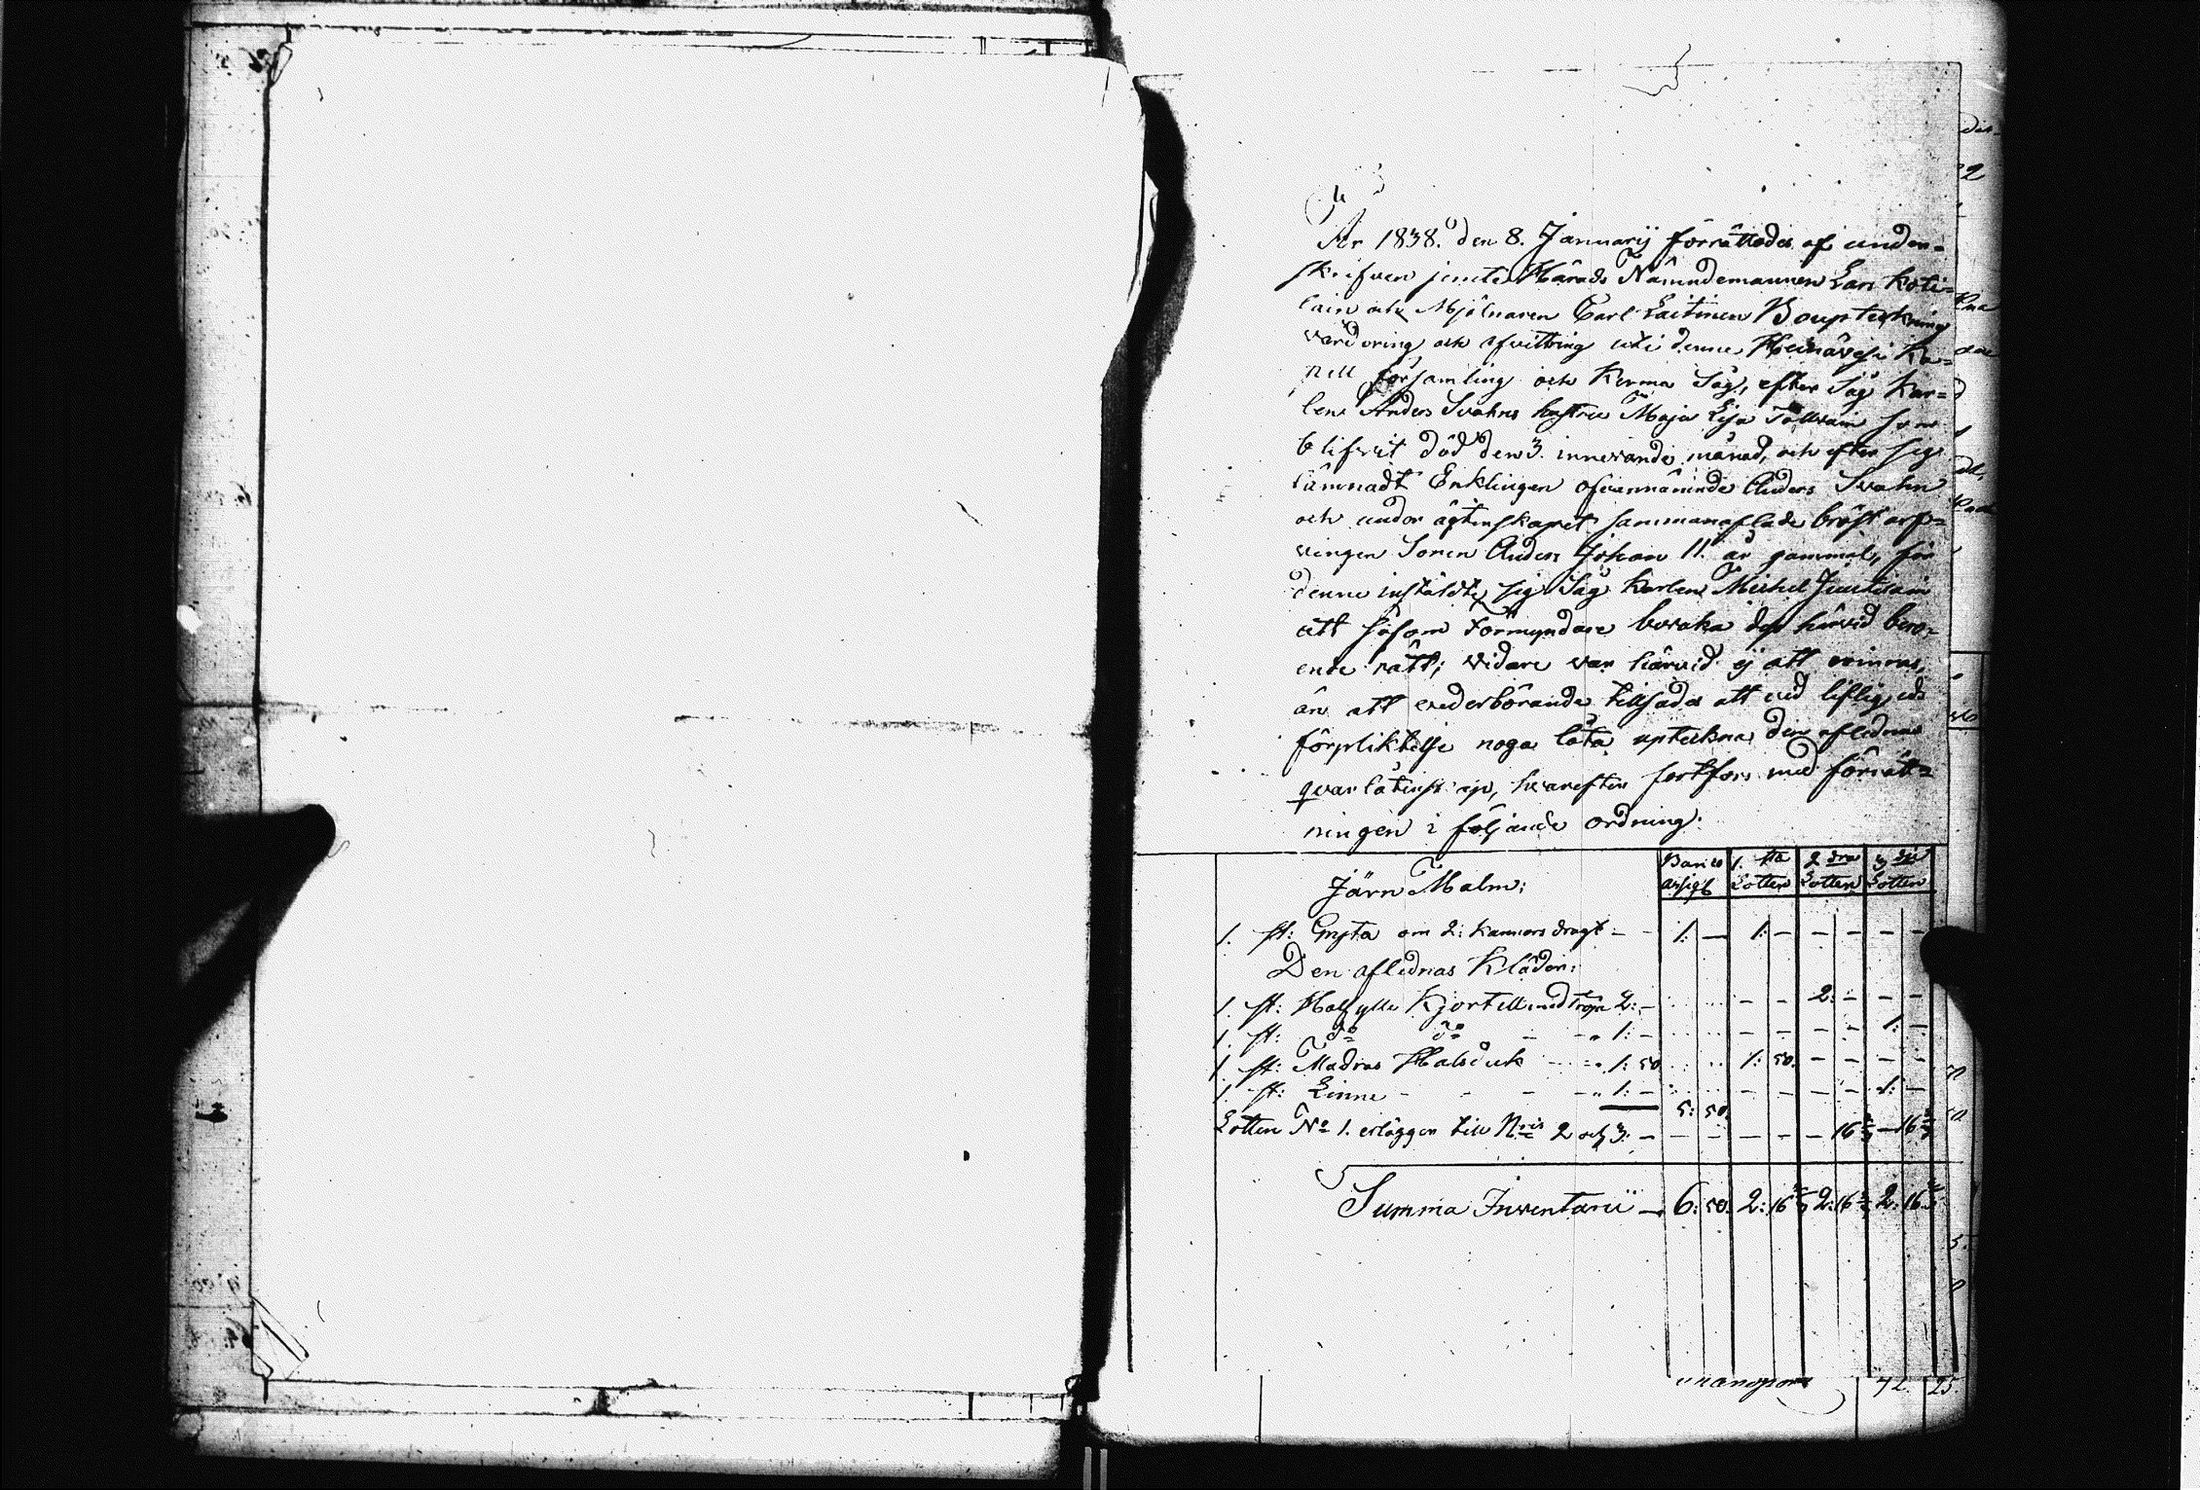 År 1838. den 8. Januarij förrättades af under-
skrifven jemte Härads Nämndemannen Lars Koti-
lain och Mjölnaren Carl Laitinen Boupteckning
värdering och afvittring uti denne Heinävesi Ka-
pell församling och Kerma Såg, efter Såg Kar-
len Anders Svahns hustru Maja Lisa som
blifvit död den 3. innevarande månad, och efter sig
lämnadt Enklingen ofvannämnde Anders Svahn
och under ägtenskapet sammanaflade bröst arf-
vingen Sonen Anders Johan 11. år gammal, för
denne inställdte sig Såg Karlen Michel
att såsom Förmyndare bevaka dess härvid bero-
ende rätt; vidare var härvid ej att
än att vederbörande tillsades att vid liflig eds
förpliktelse noga låta upteckna den aflednas
qvarlåtenskap, hvarefter fortfors med förrätt-
ningen i följande ordning:
Järn Malm: Banco assigt 1. sta Lotten 2 dra Lotten 3 dje Lotten
1. st: Gryta om 2: kannors dragt - - 1: — 1: - - - - -
Den aflednas Kläder:
1. st: Halfylle Kjortell med tröja 2: - - - 2: - - -
1. st: do do - - " 1: - - - - - 1: -
1. st: Madras Halsduk - - " 1: 50 1: 50. - - - -
1. st: Linne - - - - " 1: - 5: 50. - - - - 1: -
Lotten No 1. erlägger till N:ris 2 och 3: - - - - - - 16 2/3 - 16 2/3
Summa Inventarii — 6: 50. 2: 16 2/3 2: 16 2/3 2: 16 2/3
42 25